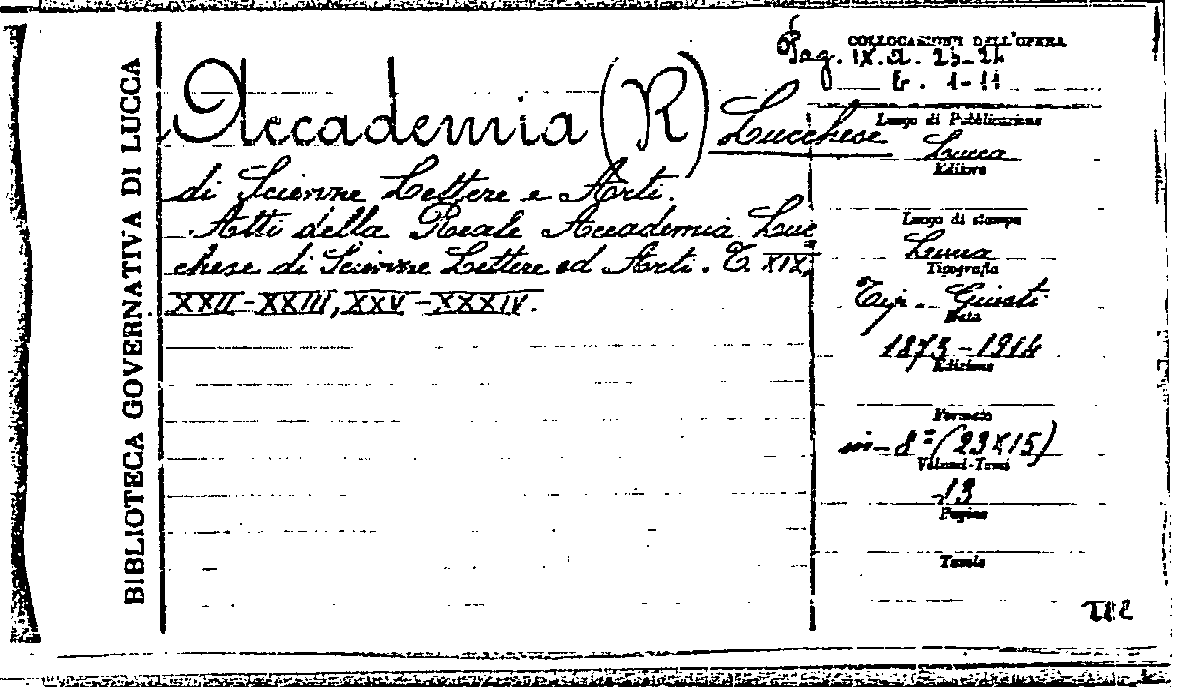 BIBLIOTECA GOVERNATIVA DI LUCCA
Accademia (R) Lucchese
di Scienze Lettere e Arti.
Atti della Reale Accademia Luc
chese di Scienze Lettere ed Arti. T. XIX,
XXII-XXIII, XXV-XXXIV.
COLLOCAZIONI DELL'OPERA
Pag. IX. a. 23-24
b. 1-11
Luogo di Pubblicazione
Lucca
Editore
Luogo di stampa
Lucca
Tipografia
Tip. Giusti
Data
1873-1914
Edizione
Formato
in-8º (23X15)
Volumi-Tomi
13
Pagine
Tavole